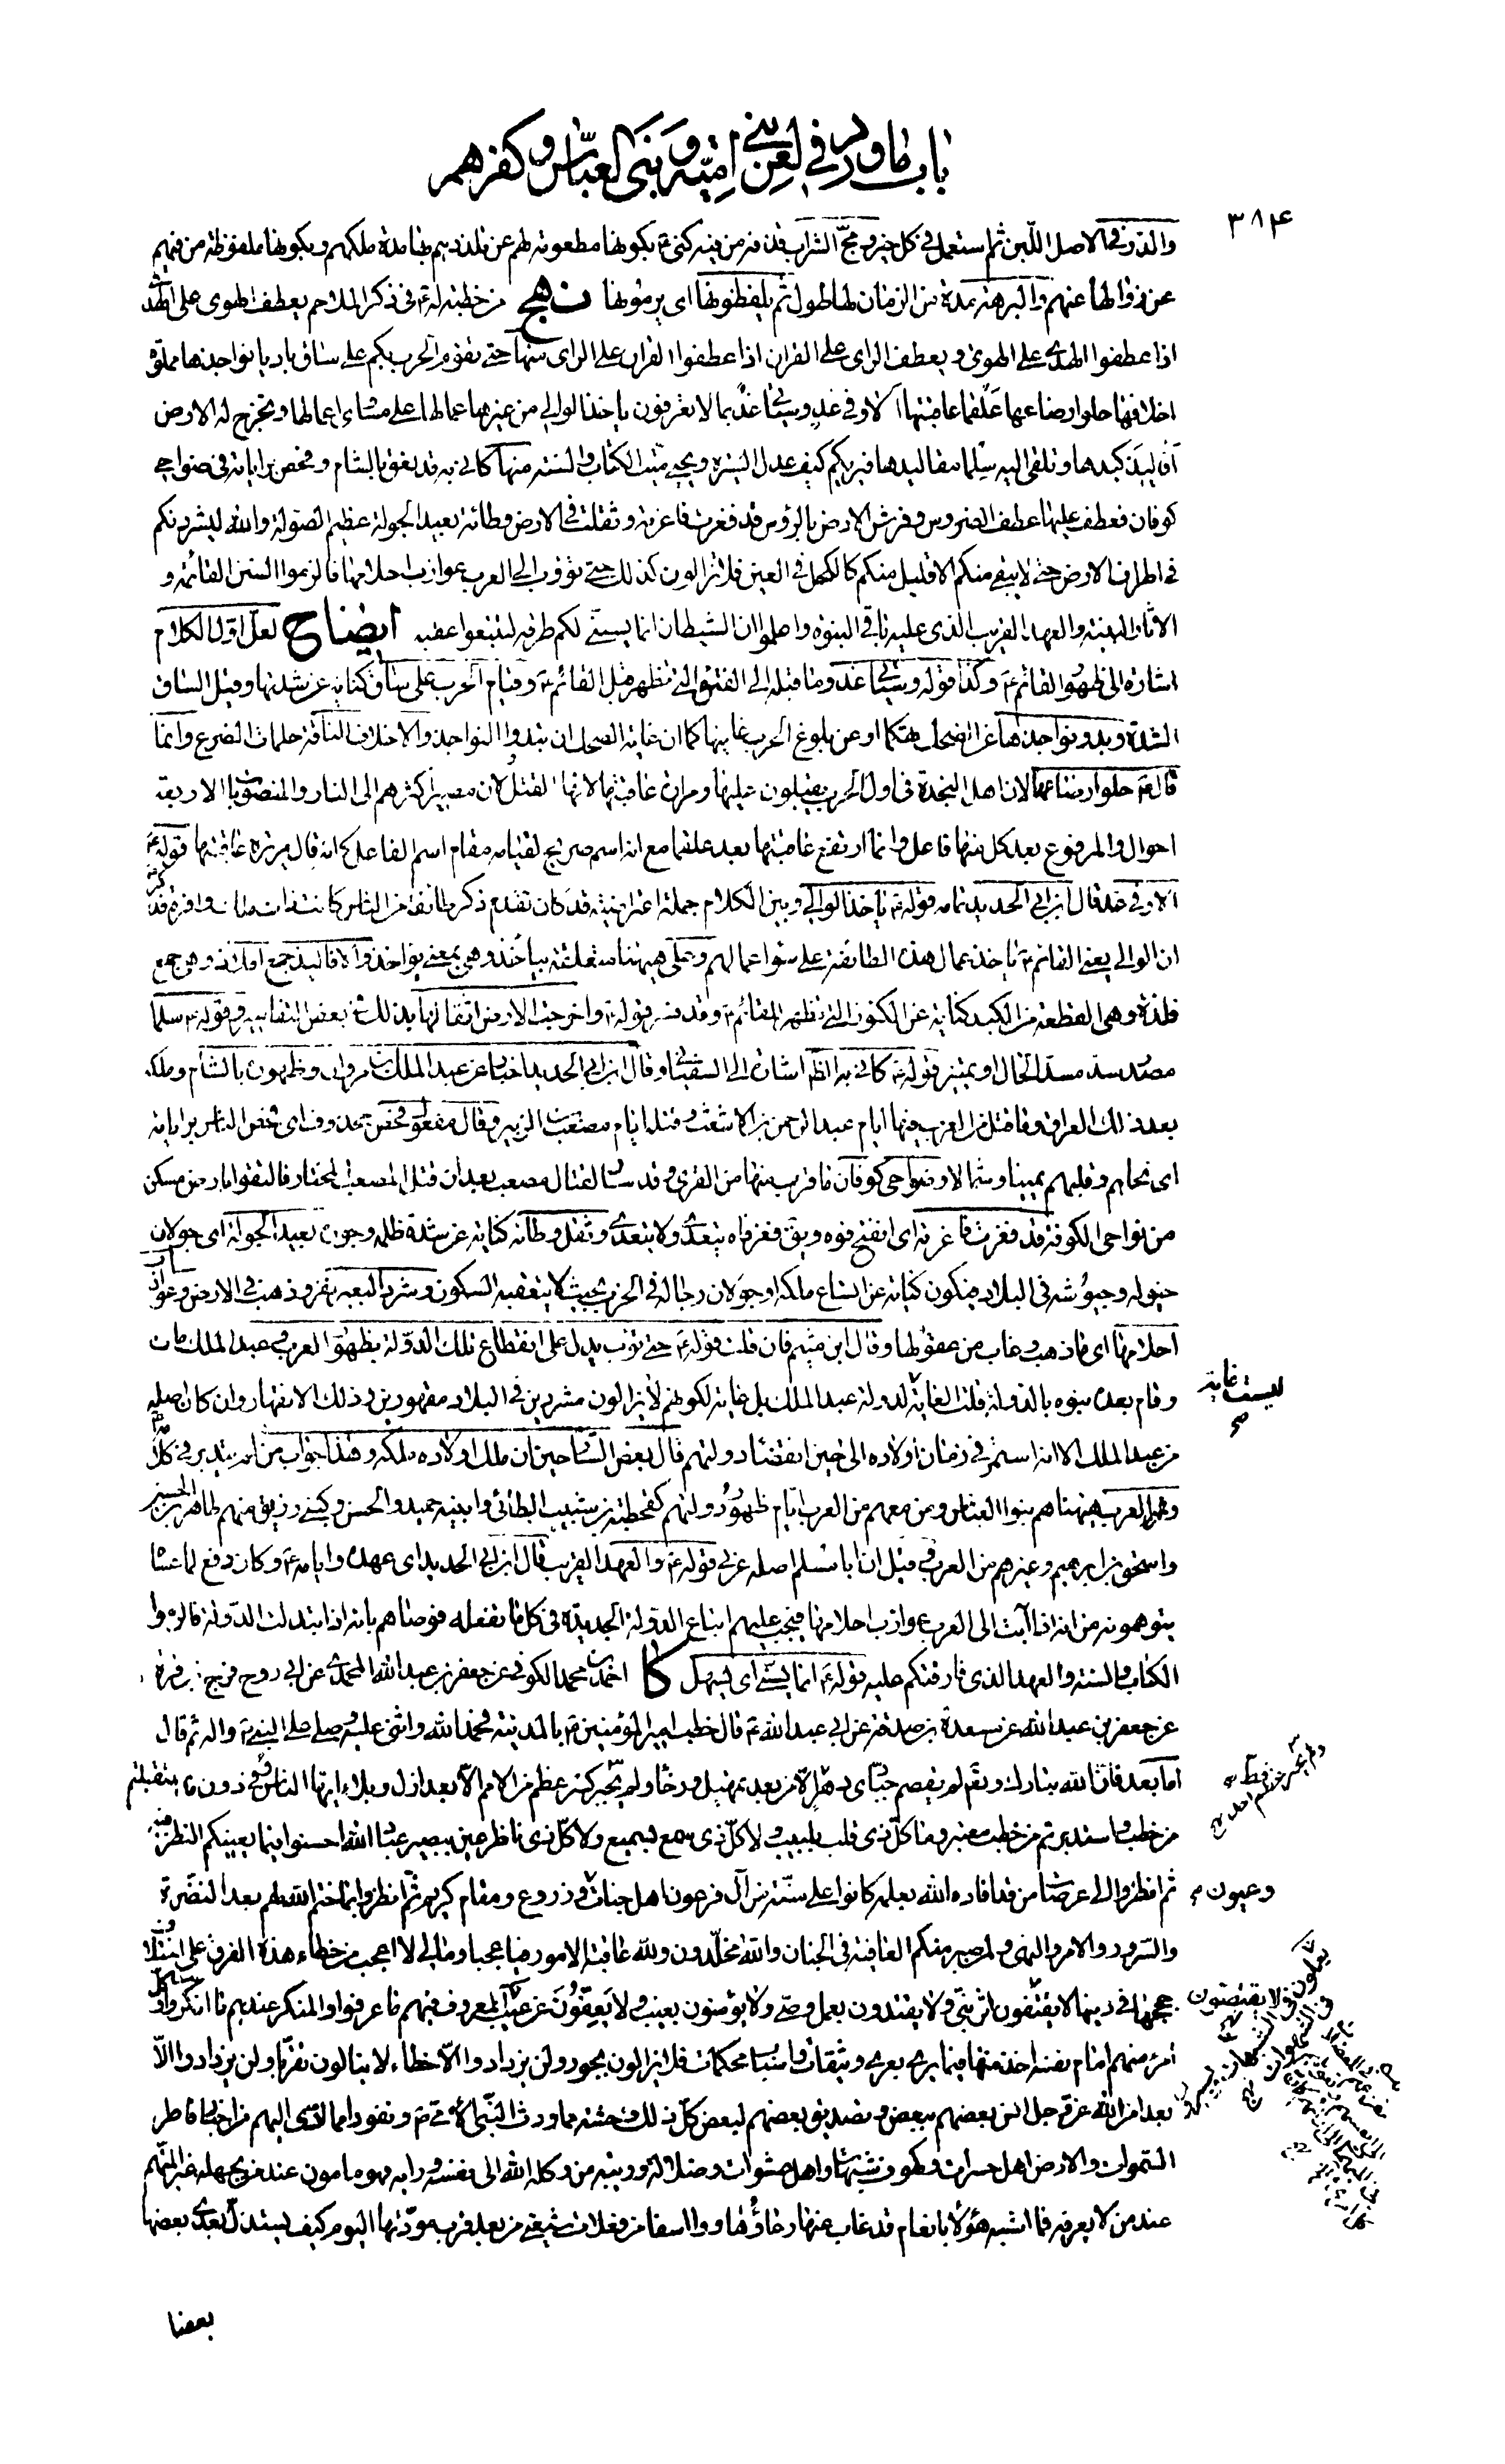 باب ما ورد في لعن بني امية وبني العباس وكفرهم
٣٨۴
والدر في الاصل اللبن ثم استعمل في كل خير ومج الشراب قذفه من فيه كنى ع بكونها مطعومة لهم عن تلذذهم بها مدة ملكهم وبكونها ملفوظة من فمهم
عن زوالها عنهم والبرهة مدة من الزمان لها طول ثم يلفظونها اى يرمونها نهج من خطبة له ع في ذكر الملاحم يعطف الهوى على الهدى
اذا عطفوا الهدى على الهوى ويعطف الراى على القران اذا عطفوا القران على الراى منها حتى تقوم الحرب بكم على ساق باديا نواجذها مملوة
اخلافها حلوا رضاعها علقما عاقبتها الا وفي غد وسياتي غد بما لا تعرفون ياخذ الوالي من غيرها عمالها على مساوى اعمالها وتخرج له الارض
افاليذ كبدها وتلقى اليه سلما مقاليدها فيريكم كيف عدل السيرة ويحيى ميت الكتاب والسنة منها كاني به قد نعق بالشام وفحص براياته في ضواحي
كوفان فعطف عليها عطف الضروس وفرش الارض بالرؤس قد فغرت فاغرته وثقلت في الارض وطاته بعيد الجولة عظيم الصولة والله ليشردنكم
في اطراف الارض حتى لا يبقى منكم الا قليل منكم كالكحل في العين فلا تزالون كذلك حتى تؤوب الى العرب عوازب احلامها فالزموا السنن القائمة و
الاثار البينة والعهد القريب الذى عليه باقي النبوة واعلموا ان الشيطان انما يسنى لكم طرقه لتتبعوا عقبه ايضاح لعل اول الكلام
اشارة الى ظهور القائم ع وكذا قوله وسياتي غد وما قبله الى الفتن التي تظهر قبل القائم ع وقيام الحرب على ساق كناية عن شدتها وقيل الساق
الشدة وبدو نواجذها عن الضحك تهكما او عن بلوغ الحرب غايتها كما ان غاية الضحك ان تبدوا النواجذ والاخلاف للناقة حلمات الضرع وانما
قال ع حلوا رضاعها لان اهل النجدة في اول الحرب يقبلون عليها ومرارة عاقبتها لانها القتل لان مصير اكثرهم الى النار والمنصوبات الاربعة
احوال والمرفوع بعد كل منها فاعل وانما ارتفع عاقبتها بعد علقما مع انه اسم صريح لقيامه مقام اسم الفاعل كانه قال مريرة عاقبتها قوله ع
الا وفي غد قال ابن ابي الحديد تمامه قوله ع ياخذ الوالي وبين الكلام جملة اعتراضية قد كان تقدم ذكر طائفة من الناس كانت ذات ملك وامرة فذكر
ان الوالي يعني القائم ع ياخذ عمال هذه الطائفة على سوء اعمالهم وعلى ههنا متعلقة بياخذ وهي بمعنى يؤاخذ والافاليذ جمع افلاذ وهي جمع
فلذة وهي القطعة من الكبد كناية عن الكنوز التي تظهر للقائم ع وقد فسر قوله ت واخرجت الارض اثقالها بذلك في بعض التفاسير وقوله ع سلما
مصدر سد مسد الحال او تمييز قوله ع كاني به الظ اشارة الى السفياني وقال ابن ابي الحديد اخبار عن عبد الملك بن مروان وظهوره بالشام وملكه
بعد ذلك العراق وما قتل من العرب فيها ايام عبد الرحمن بن الاشعث وقتله ايام مصعب بن الزبير وقال مفعول فحص محذوف اى فحص الناس براياته
اى نحاهم وقلبهم يمينا وشمالا وضواحي كوفان ما قرب منها من القرى وقد سار لقتال مصعب بعد ان قتل مصعب المختار فالتقوا بارض مسكن
من نواحي الكوفة قد فغرت فاغرته اى انفتح فوه ويق فغر فاه يتعدى ولا يتعدى وثقل وطاته كناية عن شدة ظلمه وجوره بعيد الجولة اى جولان
خيوله وجيوشه في البلاد فيكون كناية عن اتساع ملكه او جولان رجاله في الحرب بحيث لا يتعقبه السكون وشرد البعير نفر وذهب في الارض وعوازب
احلامها اى ما ذهب وغاب من عقولها وقال ابن ميثم فان قلت قوله ع حتى تؤب يدل على انقطاع تلك الدولة بظهور العرب وعبد الملك مات
وقام بعده بنوه بالدولة قلت الغاية لدولة عبد الملك بل غاية لكونهم لا يزالون مشردين في البلاد مقهورين وذلك الانقهار وان كان اصله
ليست غاية صح
من عبد الملك الا انه استمر في زمان اولاده الى حين انقضاء دولتهم قال بعض الشارحين ان ملك اولاده ملكه وهذا جواب من لم يتدبر في كلامه
والعرب ههنا هم بنوا العباس ومن معهم من العرب ايام ظهور دولتهم كقحطبة بن شبيب الطائي وابنيه حميد والحسن وكبني رزيق منهم طاهر بن الحسين
واسحق بن ابرهيم وغيرهم من العرب وقيل ان ابا مسلم اصله عربي قوله ع والعهد القريب قال ابن ابي الحديد اى عهده وايامه ع وكان دفع لما عساه
يتوهمونه من انه اذا آبت الى العرب عوازب احلامها فيجب عليهم اتباع الدولة الجديدة في كل ما تفعله فوصاهم بانه اذا تبدلت الدولة فالزموا
الكتاب والسنة والعهد الذى فارقتكم عليه قوله ع انما يسنى اى يسهل كا احمد بن محمد الكوفي عن جعفر بن عبد الله المحمدى عن ابي روح فرج بن قرة
عن جعفر بن عبد الله عن مسعدة بن صدقة عن ابي عبد الله ع قال خطب امير المؤمنين ع بالمدينة فحمد الله واثنى عليه وصلى على النبي ص واله ثم قال
اما بعد فان الله تبارك وتع لم يقصم جباري دهر الا من بعد تمهيل ورخاء ولم يجبر كسر عظم من الامم الا بعد ازل وبلاء ايها الناس وفي دون ما استقبلتم
من خطب واستدبرتم من خطب معتبر وما كل ذى قلب بلبيب ولا كل ذى سمع بسميع ولا كل ذى ناظر عين ببصير عباد الله احسنوا فيما يعنيكم النظر فيه
ثم انظروا الى عرصات من قد اقاده الله بعلمه كانوا على سنة من آل فرعون اهل جنات وزروع ومقام كريم ثم انظروا بما ختم الله لهم بعد النضرة
وعيون ص
والسرور والامر والنهى ولمن صبر منكم العاقبة في الجنان والله مخلدون ولله عاقبة الامور فيا عجبا ومالي لا اعجب من خطاء هذه الفرق على اختلاف
حججها في دينها لا يقتفون اثر نبي ولا يقتدون بعمل وصي ولا يؤمنون بغيب ولا يعفون عن عيب المعروف فيهم ما عرفوا والمنكر عندهم ما انكروا وكل
امرئ منهم امام نفسه اخذ منها فيما يرى بعرى وثيقات واسباب محكمات فلا يزالون بجور ولن يزدادوا الا خطاء لا ينالون تقربا ولن يزدادوا الا
بعدا من الله عز وجل انس بعضهم ببعض وتصديق بعضهم لبعض كل ذلك وحشة مما ورث النبي الامي ص ونفورا مما ادى اليهم من اخبار فاطر
السموات والارض اهل حسرات وكهوف شبهات واهل عشوات وضلالة وريبة من وكله الله الى نفسه ورايه فهو مامون عند من يجهله غير المتهم
عند من لا يعرفه فما اشبه هؤلاء بانعام قد غاب عنها رعاؤها ووااسفا من فعلات شيعتي من بعد قرب مودتها اليوم كيف يستذل بعدى بعضها
بعضا